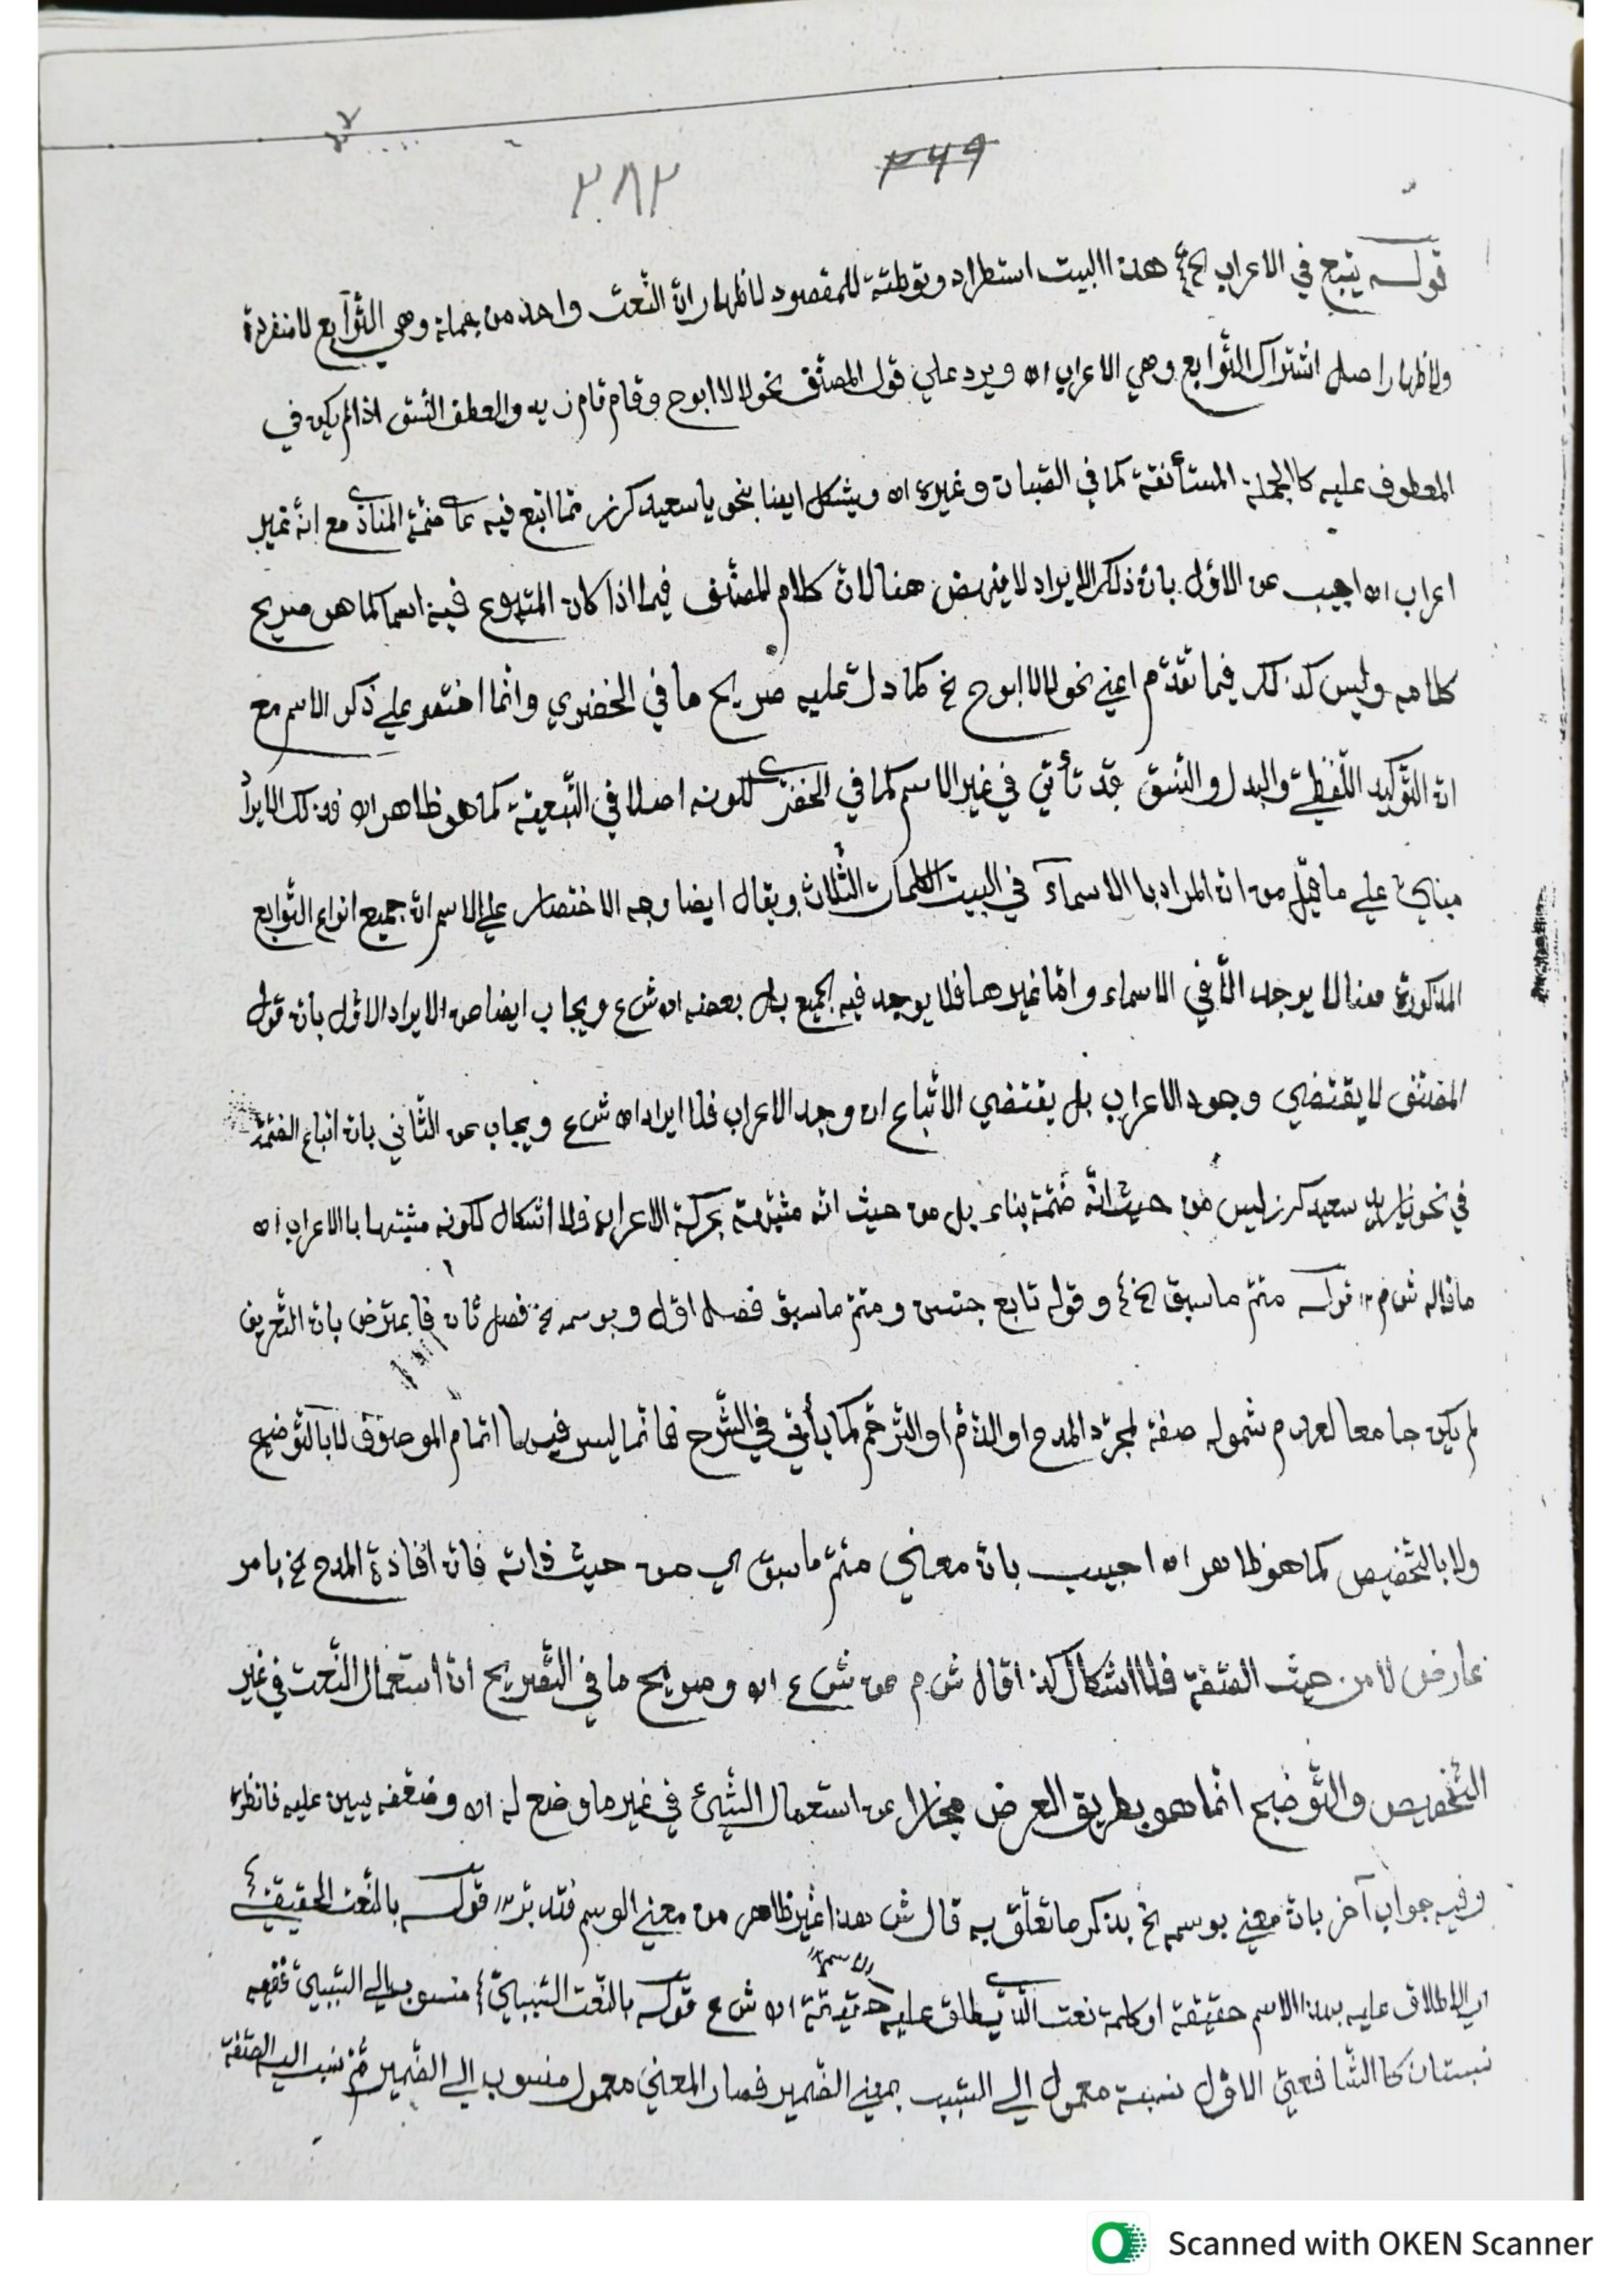 ٢٦٩
٢٨٢
قولـه يتبع في الاعراب الخ هذا البيت استطراد وتوطئة للمقصود لاظهار انّ النّعت واحد من جملة وهي التّوابع لا منفردة
ولاظهار اصل اشتراك التّوابع وهي الاعراب اه ويرد علي قول المصنّف نحو لا لا ابوح وقام قام زيد والعطف النّسق اذا لم يكن في
المعطوف عليه كالجملة المستأنفة كما في الصّبان وغيره اه ويشكل ايضا بنحو يا سعيد كرز ممّا اتبع فيه علي ضمّة المنادي مع انّه غير
اعراب اه اجيب عن الاوّل بانّ ذلك الايراد لا ينهض هنا لانّ كلام المصنّف فيما اذا كان المتبوع فيه اسما كما هو صريح
كلامه وليس كذلك فيما تقدّم اعني نحو لا لا ابوح خ كما دلّ عليه صريح ما في الخضري وانّما اختصر علي ذكر الاسم مع
انّ التّوكيد اللّفظيّ والبدل والنّسق قد تأتي في غير الاسم كما في الخضري لكونه اصلا في التّبعيّة كما هو ظاهر اه فذلك الايراد
مبنيّ علي ما قيل من انّ المراد با الاسماء في البيت الكلمات الثّلاث ويقال ايضا وجه الاختصار علي الاسم انّ جميع انواع التّوابع
المذكورة هنا لا يوجد الّا في الاسماء وامّا غيرها فلا يوجد فيه الجميع بل بعضه اه ش ع ويجاب ايضا عن الايراد الاوّل بانّ قول
المصنّف لا يقتضي وجود الاعراب بل يقتضي الاتّباع ان وجد الاعراب فلا ايراد اه ش ع ويجاب عن الثّاني بانّ اتباع الضّمّة
في نحو سعيد كرز ليس من حيث انّه ضمّة بناء بل من حيث انّه مشبّهة بحركة الاعراب فلا اشكال لكونه مشبّها با الاعراب اه
ما قاله ش م ١٢ قولـه متمّ ما سبق الخ وقوله تابع جنس ومتمّ ما سبق فصل اوّل وبوسمه خ فصل ثان فاعترض بانّ التّعريف
لم يكن جامعا لعدم شموله صفة لمجرّد المدح او الذّمّ او التّرحّم كما يأتي في الشّرح فانّما ليس فيها اتمام الموصوف لا با التّوضيح
ولا با التّخصيص كما هو ظاهر اه اجيب بانّ معني متمّ ما سبق اي من حيث ذاته فانّ افادة المدح خ بامر
عارض لا من حيث الصّفة فلا اشكال كذا قال ش م عن ش ع اه وصريح ما في التّصريح انّ استعمال النّعت في غير
التّخصيص والتّوضيح انّما هو بطريق العرض مجازا عن استعمال الشّيئ في غير ما وضع له اه وضعّفه يسين عليه فانظره
وفيه جواب آخر بانّ معني بوسمه خ بذكر ما تعلّق به قال ش هذا غير ظاهر من معني الوسم فتدبّر ١٢ قولـه بالنّعت الحقيقيّ
اي لاطلاق عليه بهذا الاسم حقيقة او كلمة نعت الّذي يطلق عليه حقيقة اه ش ع قولـه بالنّعت السّببيّ منسوب الي السّببيّ ففيه
نسبتان كا الشّافعيّ الاوّل نسبة معمول الي السّبب بمعني الضّمير فصار المعني معمول منسوب الي الضّمير ثمّ نسب اليه الصّفة
Scanned with OKEN Scanner